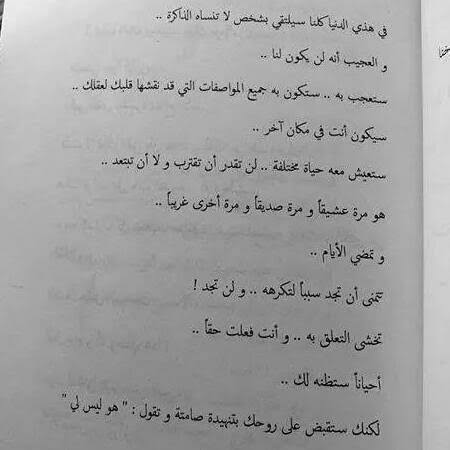 في هذي الدنيا كلنا سيلتقي بشخص لا تنساه الذاكرة ..
و العجيب أنه لن يكون لنا ..
ستعجب به .. ستكون به جميع المواصفات التي قد نقشها قلبك لعقلك ..
سيكون أنت في مكان آخر ..
ستعيش معه حياة مختلفة .. لن تقدر أن تقترب و لا أن تبتعد ..
هو مرة عشيقاً و مرة صديقاً و مرة أخرى غريباً ..
و تمضي الأيام ..
تتمنى أن تجد سبباً لتكرهه .. و لن تجد !
تخشى التعلق به .. و أنت فعلت حقاً ..
أحياناً ستظنه لك ..
لكنك ستقبض على روحك بتنهيدة صامتة و تقول : " هو ليس لي "